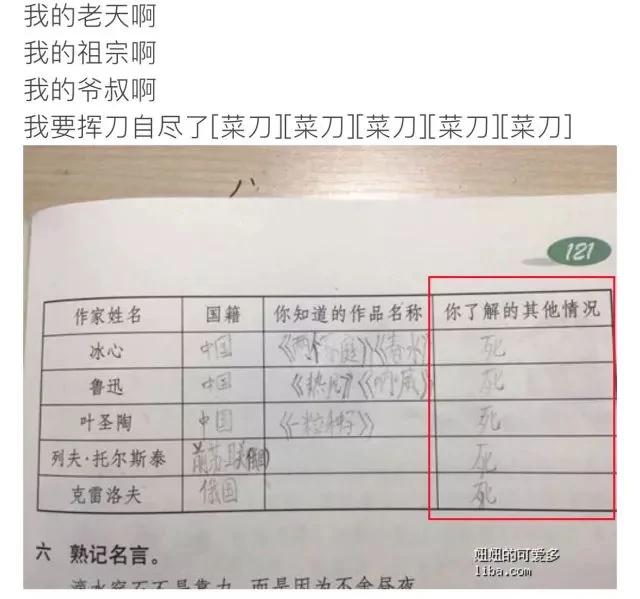 我的老天啊
我的祖宗啊
我的爷叔啊
我要挥刀自尽了[菜刀][菜刀][菜刀][菜刀][菜刀]
121
作家姓名 国籍 你知道的作品名称 你了解的其他情况
冰心 中国 《两个家庭》《春水》 死
鲁迅 中国 《热风》《呐喊》 死
叶圣陶 中国 《一粒种子》 死
列夫·托尔斯泰 前苏联(俄国) 死
克雷洛夫 俄国 死
六 熟记名言。
妞妞的可爱多
liba.com
滴水穿石不是靠力,而是因为不舍昼夜